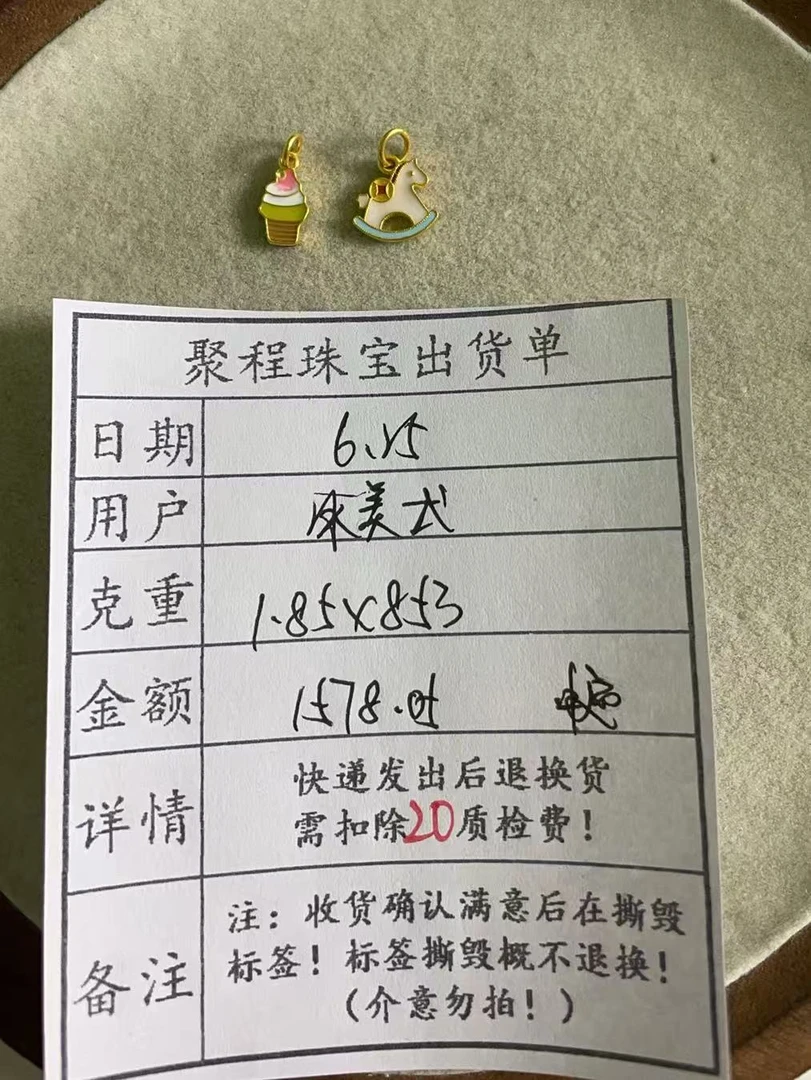 聚程珠宝出货单
日期 6.25
用户 美式
克重 1.85×853
金额 1578.05
详情 快递发出后退换货
需扣除20质检费！
备注 注：收货确认满意后在撕毁
标签！标签撕毁概不退换！
（介意勿拍！）